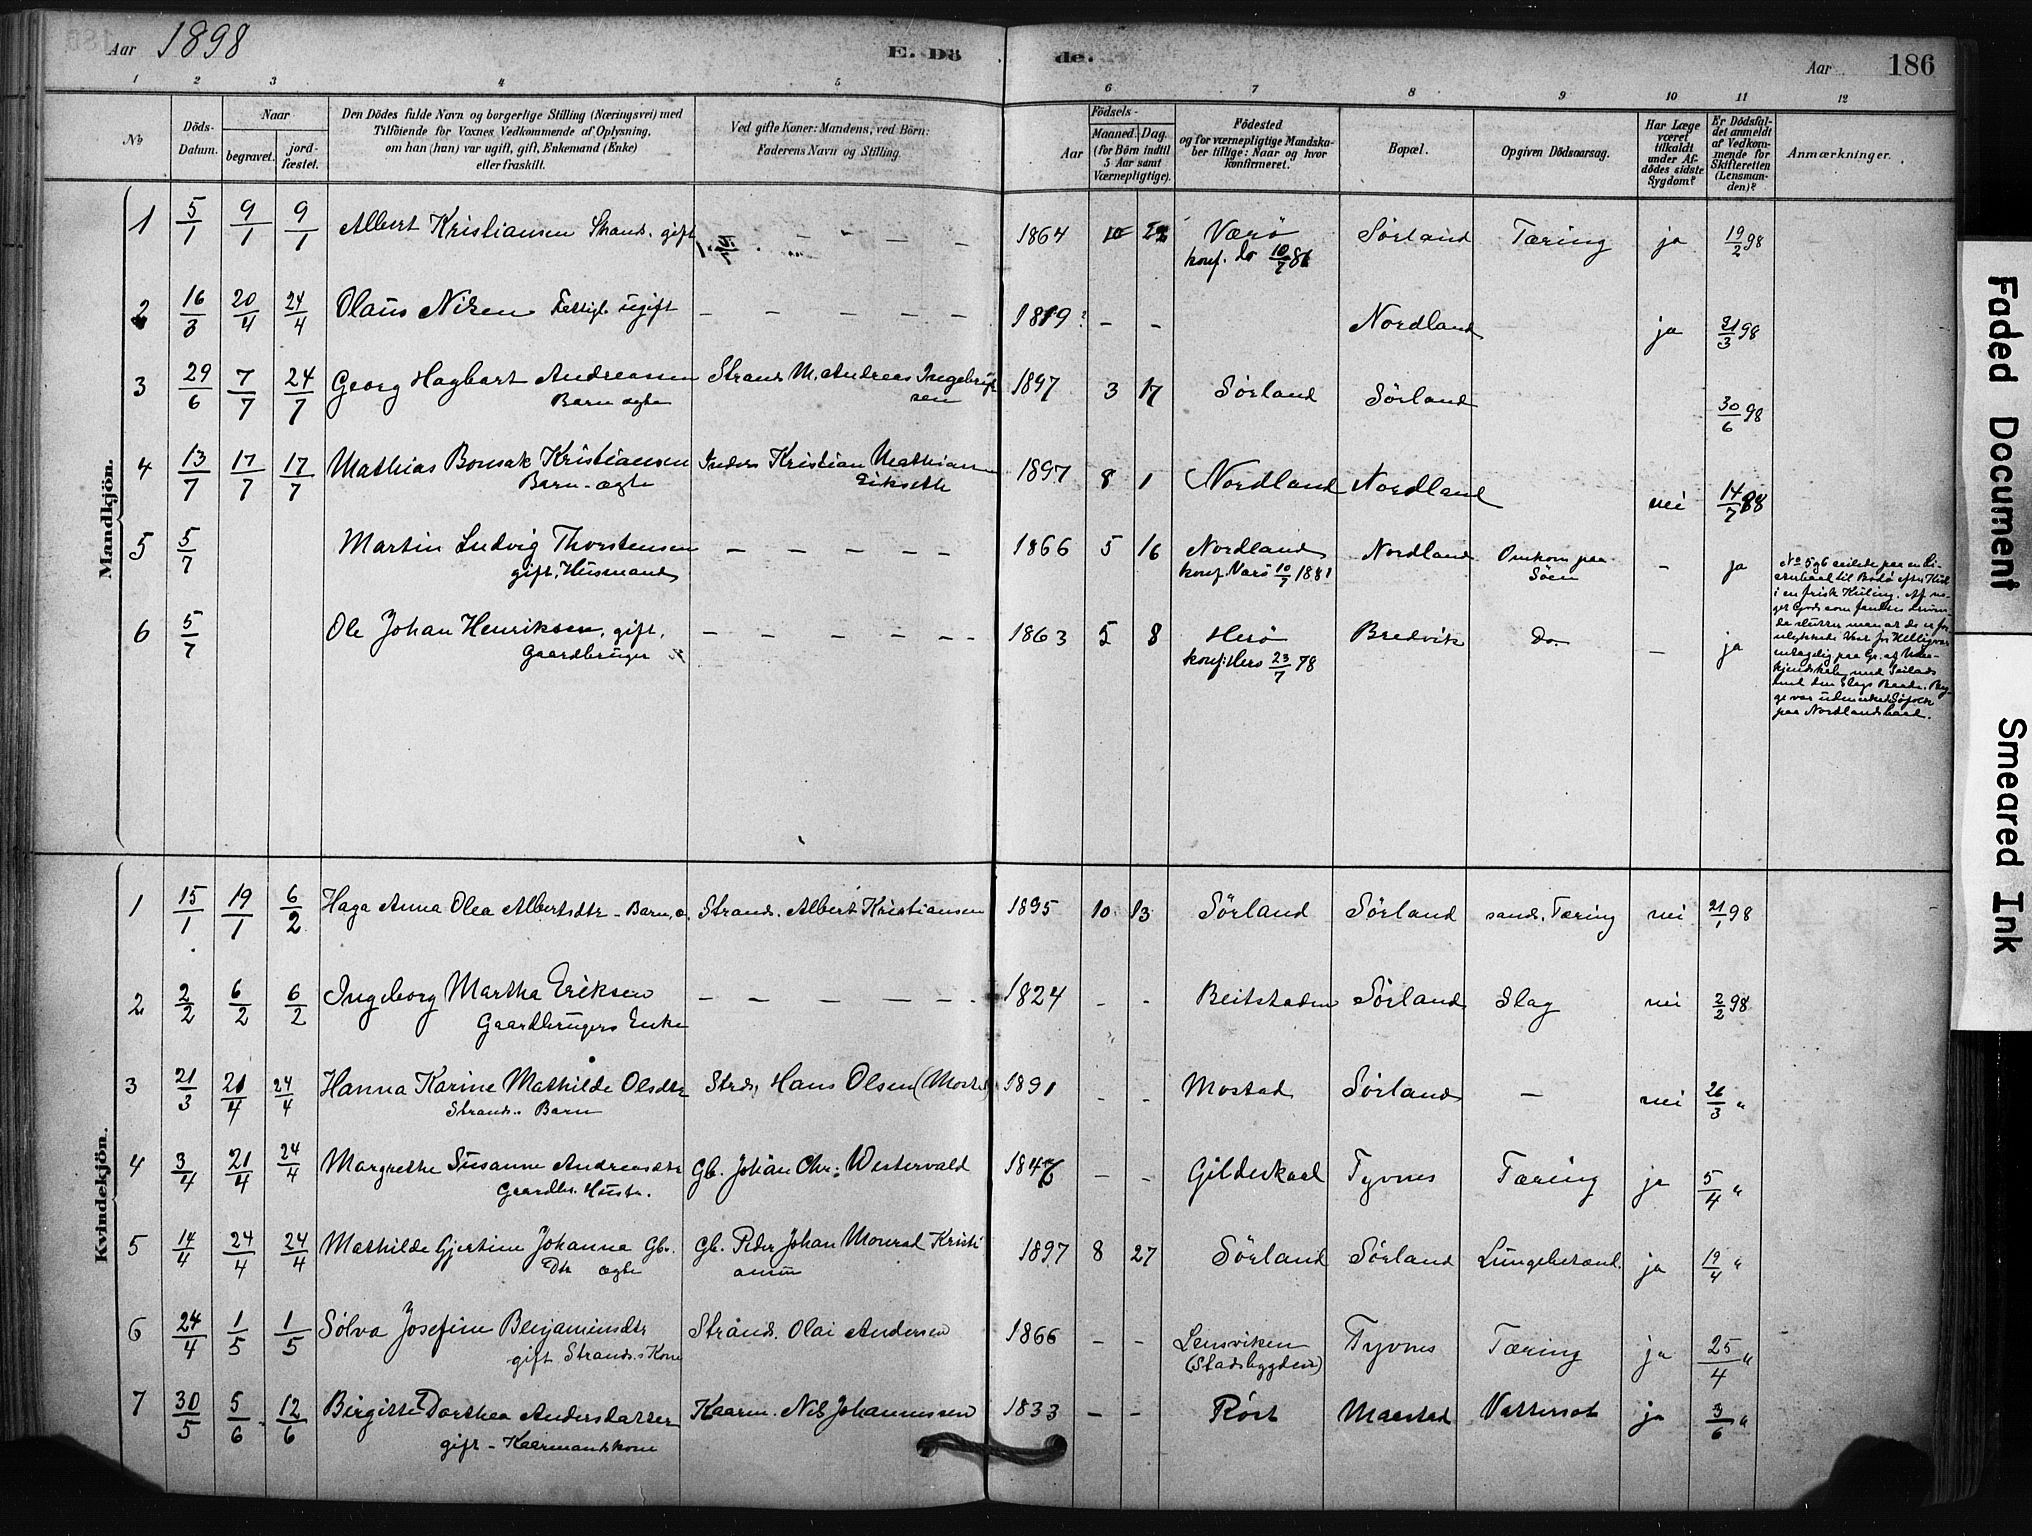 Aar 1898 E. Döde. Aar 186
1 2 3 4 5 6 7 8 9 10 11 12
No
Döds-Datum.
Naar
begravet.
jordfæstet.
Den Dödes fulde Navn og borgerlige Stilling (Næringsvei) med
Tilföiende for Voxnes Vedkommende af Oplysning,
om han (hun) var ugift, gift, Enkemand (Enke)
eller fraskilt.
Ved gifte Koner: Mandens, ved Börn:
Faderens Navn og Stilling.
Födsels-
Aar
Maaned. Dag.
(for Börn indtil
5 Aar samt
Værnepligtige).
Födested
og for værnepligtige Mandskaber tillige: Naar og hvor
konfirmeret.
Bopæl.
Opgiven Dödsaarsag.
Har Læge
været
tilkaldt
under Afdödes sidste
Sygdom?
Er Dödsfaldet anmeldt
af Vedkommende for
Skifteretten
(Lensmanden)?
Anmærkninger.
Mandkjön.
1 5/1 9/1 9/1 Albert Kristiansen Strands. gift 1864 10 22 Værö Sørland Tæring ja 19/2 98
konf. do 10/7 81
2 16/3 20/4 24/4 Olaus Nilsen Fattigl. ugift — — — — — 1819? - - Nordland ja 21/3 98
3 29/6 7/7 24/7 Georg Hagbart Andreassen Strand M. Andreas Ingebrigt 1897 3 17 Sørland Sørland 30/6 98
Barn ægte sen
4 13/7 17/7 17/7 Mathias Bonsak Kristiansen Inders Kristian Mathias 1897 8 1 Nordland Nordland nei 14/7 98
Barn - ægte Eikseth
5 5/7 Martin Ludvig Thorstensen — — — — — 1866 5 16 Nordland Nordland Omkom paa - ja
gift, Husmand konf. Værö 10/7 1881 Søen
6 5/7 Ole Johan Henriksen, gift, — — — — — 1863 5 8 Herö Bredvik do. - ja
Gaardbruger konf. Herö 23/7 78
No 5 og 6 seilede paa en Li-
til Bodö efter
i en frisk Kuling. Af no-
get Gods som fandtes
paa Nordlandsbaad.
Kvindekjön.
1 15/1 19/1 6/2 Haga Anna Olea Albertsdtr - Barn, æ. Strands. Albert Kristiansen 1895 10 13 Sørland Sørland sands. Tæring nei 21/1 98
2 2/2 6/2 6/2 Ingeborg Martha Eriksen — — — — — 1824 - - Beitstaden Sørland Slag nei 2/2 98
Gaardbrugers Enke
3 21/3 21/4 24/4 Hanna Karine Mathilde Olsdtr Strds, Hans Olsen (Mostad) 1891 - - Mostad Sørland — nei 26/3 "
Strands. Barn
4 3/4 21/4 24/4 Margrethe Susanne Andreasdtr Gb. Johan Chr. Westervald 1846 - - Gildeskaal Tyvnes Tæring ja 5/4 "
Gaardbr. Hustr.
5 14/4 24/4 24/4 Mathilde Gjertine Johanna Gbr. Gb. Peder Johan Monrad Kristi 1897 8 27 Sørland Sørland Lungebetænd. ja 19/4 "
Dtr ægte ansen
6 24/4 1/5 1/5 Sölva Josefine Benjaminsdtr Strand. Olai Andersen 1866 - - Lensviken Tyvnes Tæring ja 25/4 "
gift Strands. Kone (Stadsbygden)
7 30/5 5/6 12/6 Birgitte Dorthea Andersdatter Kaarm. Nils Johannessen 1833 - - Røst Maastad Vattersot ja 3/6 "
gift - Kaarmandskone
Faded Document
Smeared Ink